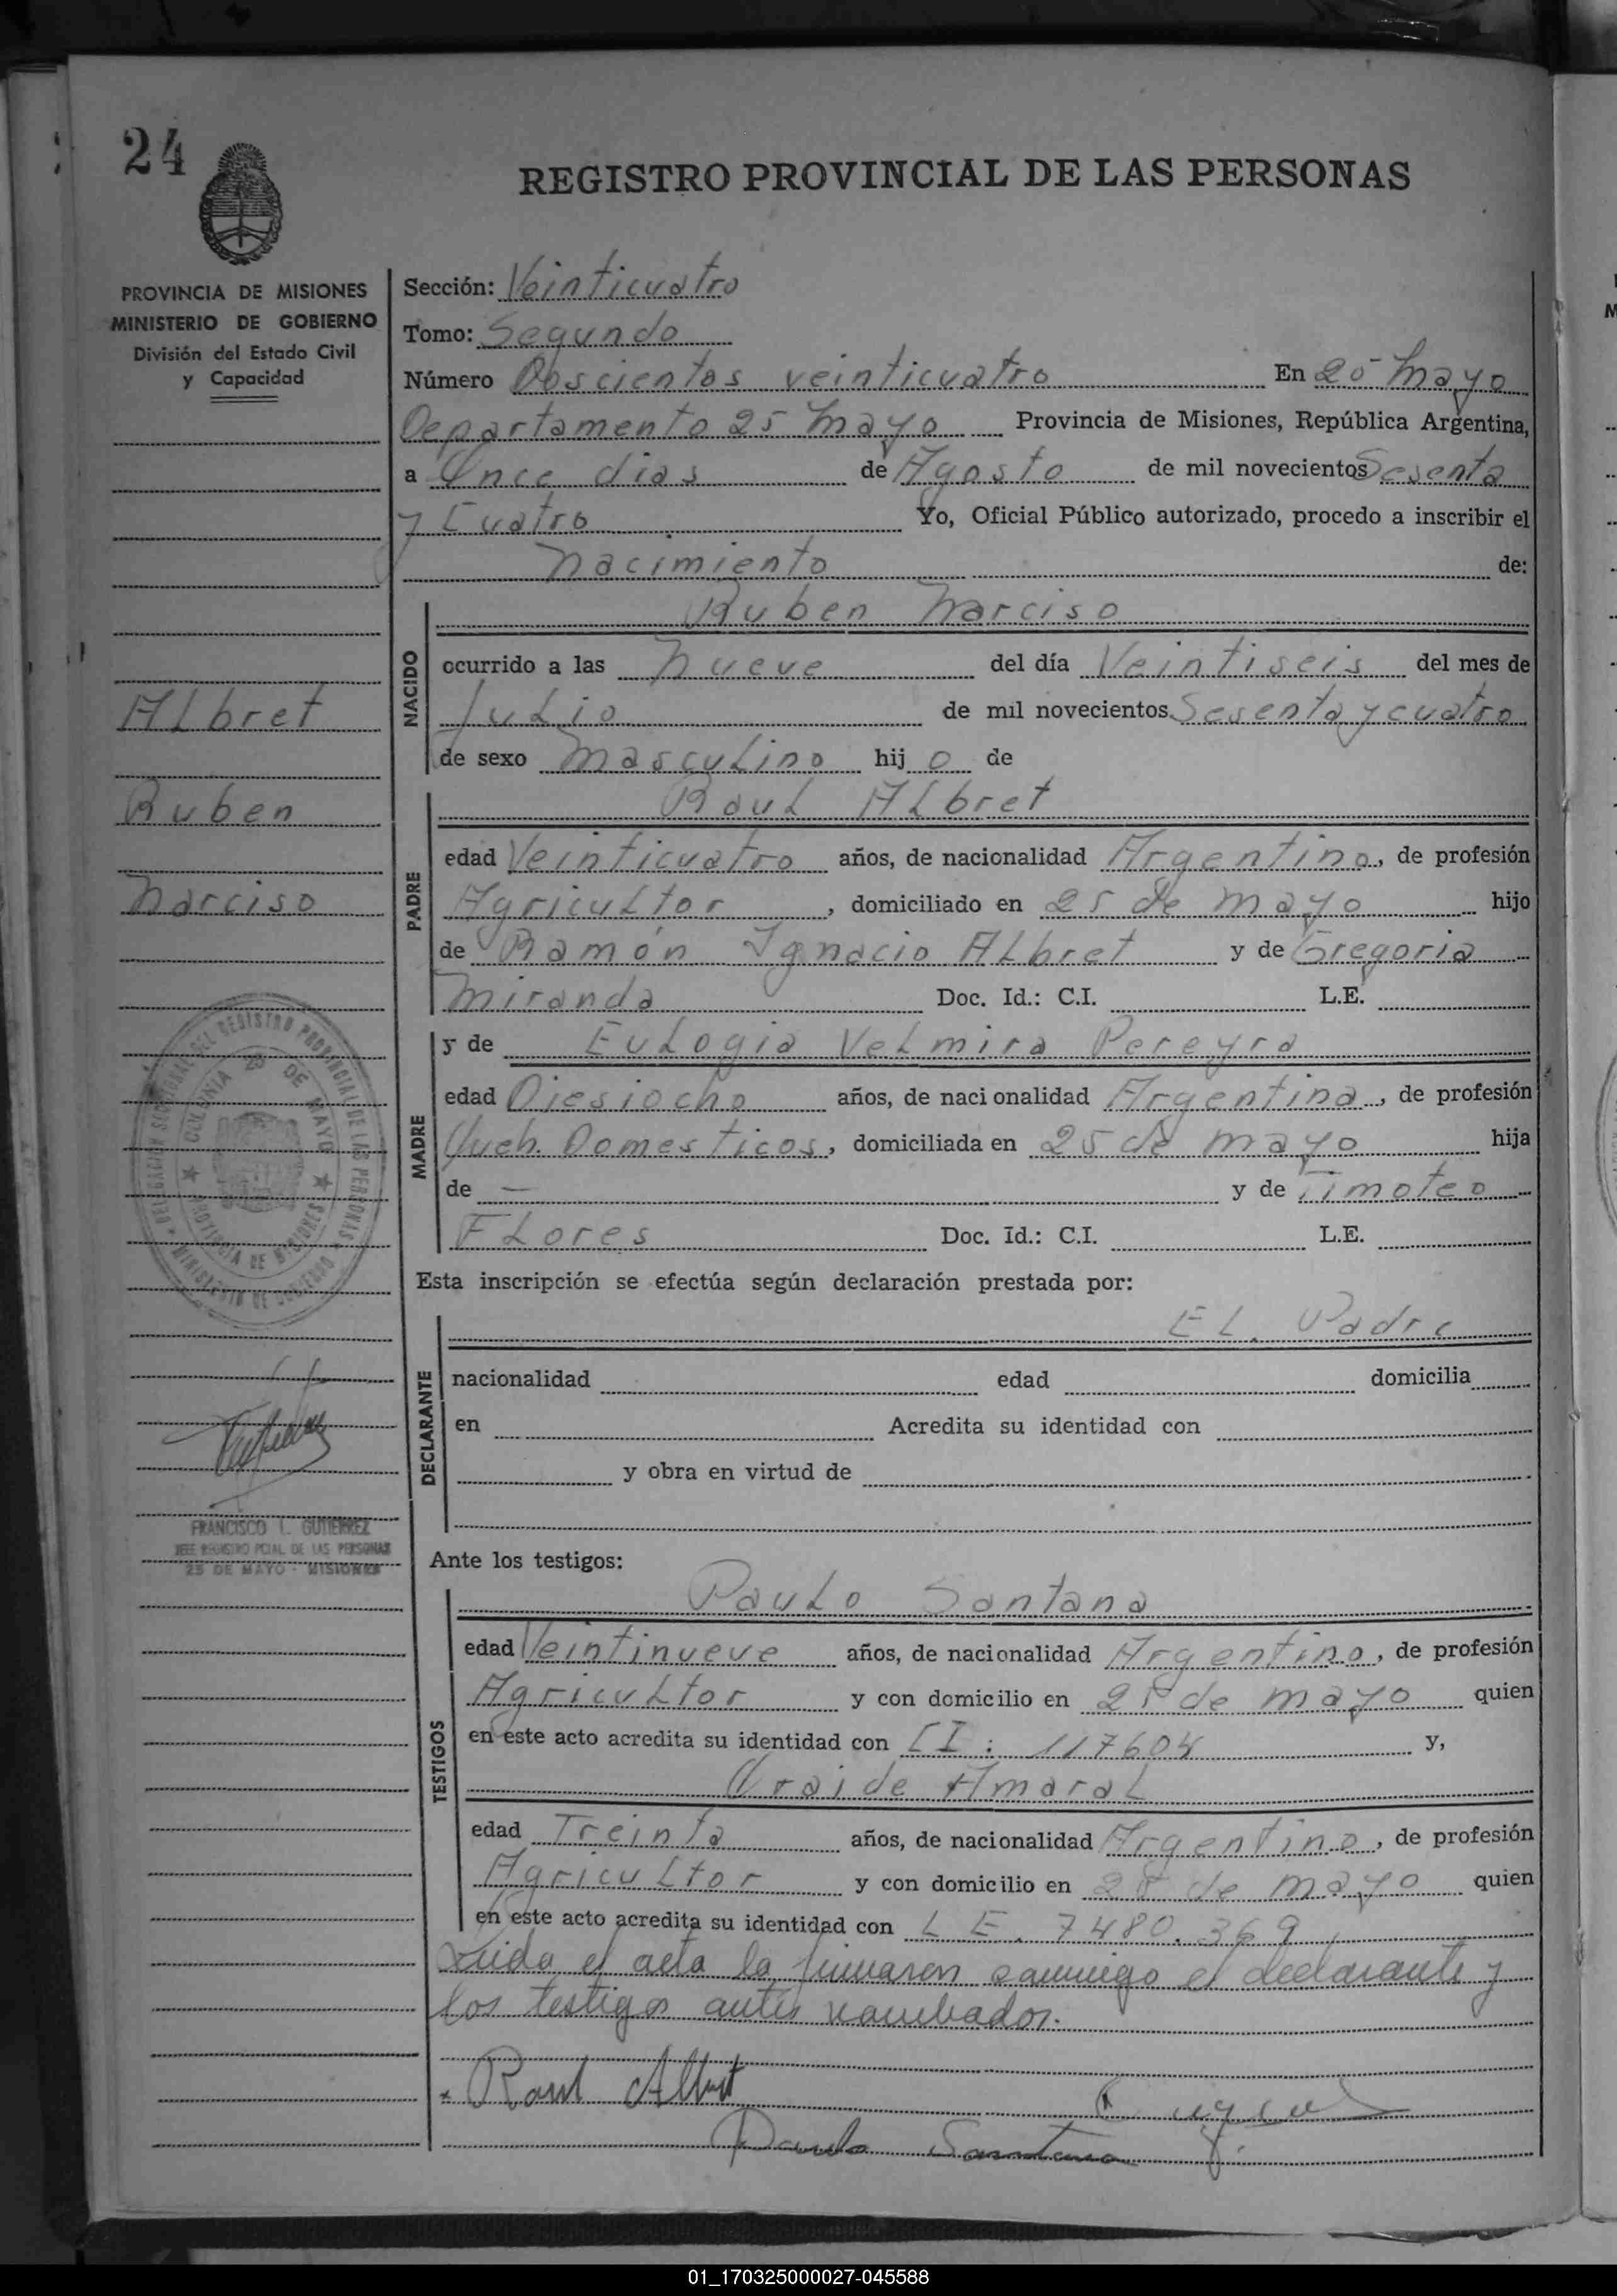 24
REGISTRO PROVINCIAL DE LAS PERSONAS
PROVINCIA DE MISIONES
MINISTERIO DE GOBIERNO
División del Estado Civil
y Capacidad
Sección: Veinticuatro
Tomo: Segundo
Número Doscientos veinticuatro En 25 Mayo
Departamento 25 Mayo Provincia de Misiones, República Argentina,
a Once dias de Agosto de mil novecientos Sesenta
y Cuatro Yo, Oficial Público autorizado, procedo a inscribir el
Nacimiento de:
NACIDO
Ruben Narciso
ocurrido a las Nueve del día Veintiseis del mes de
Julio de mil novecientos Sesenta y cuatro
de sexo Masculino hij o de
Albret
Ruben
Narciso
PADRE
Raul Albret
edad Veinticuatro años, de nacionalidad Argentino, de profesión
Agricultor, domiciliado en 25 de Mayo hijo
de Ramón Ignacio Albret y de Gregoria
Miranda Doc. Id.: C.I. L.E.
MADRE
y de Eulogia Velmira Pereyra
edad Diesiocho años, de nacionalidad Argentina, de profesión
Queh. Domesticos, domiciliada en 25 de Mayo hija
de — y de Timoteo
Flores Doc. Id.: C.I. L.E.
DELEGACION SECCIONAL DEL REGISTRO PROVINCIAL DE LAS PERSONAS
MINISTERIO DE GOBIERNO
COLONIA 25 DE MAYO
PROVINCIA DE MISIONES
Esta inscripción se efectúa según declaración prestada por:
DECLARANTE
El Padre
nacionalidad edad domicilia
en Acredita su identidad con
y obra en virtud de
FRANCISCO I. GUTIERREZ
JEFE REGISTRO PCIAL DE LAS PERSONAS
25 DE MAYO - MISIONES
Ante los testigos:
TESTIGOS
Paulo Santana
edad Veintinueve años, de nacionalidad Argentino, de profesión
Agricultor y con domicilio en 25 de Mayo quien
en este acto acredita su identidad con CI: 117604 y,
Oraide Amaral
edad Treinta años, de nacionalidad Argentino, de profesión
Agricultor y con domicilio en 25 de Mayo quien
en este acto acredita su identidad con L E. 7480.369
Leida el acta la firmaron conmigo el declarante y
los testigos antes nombados.
Raul Albret
Paulo Santana
01_170325000027-045588